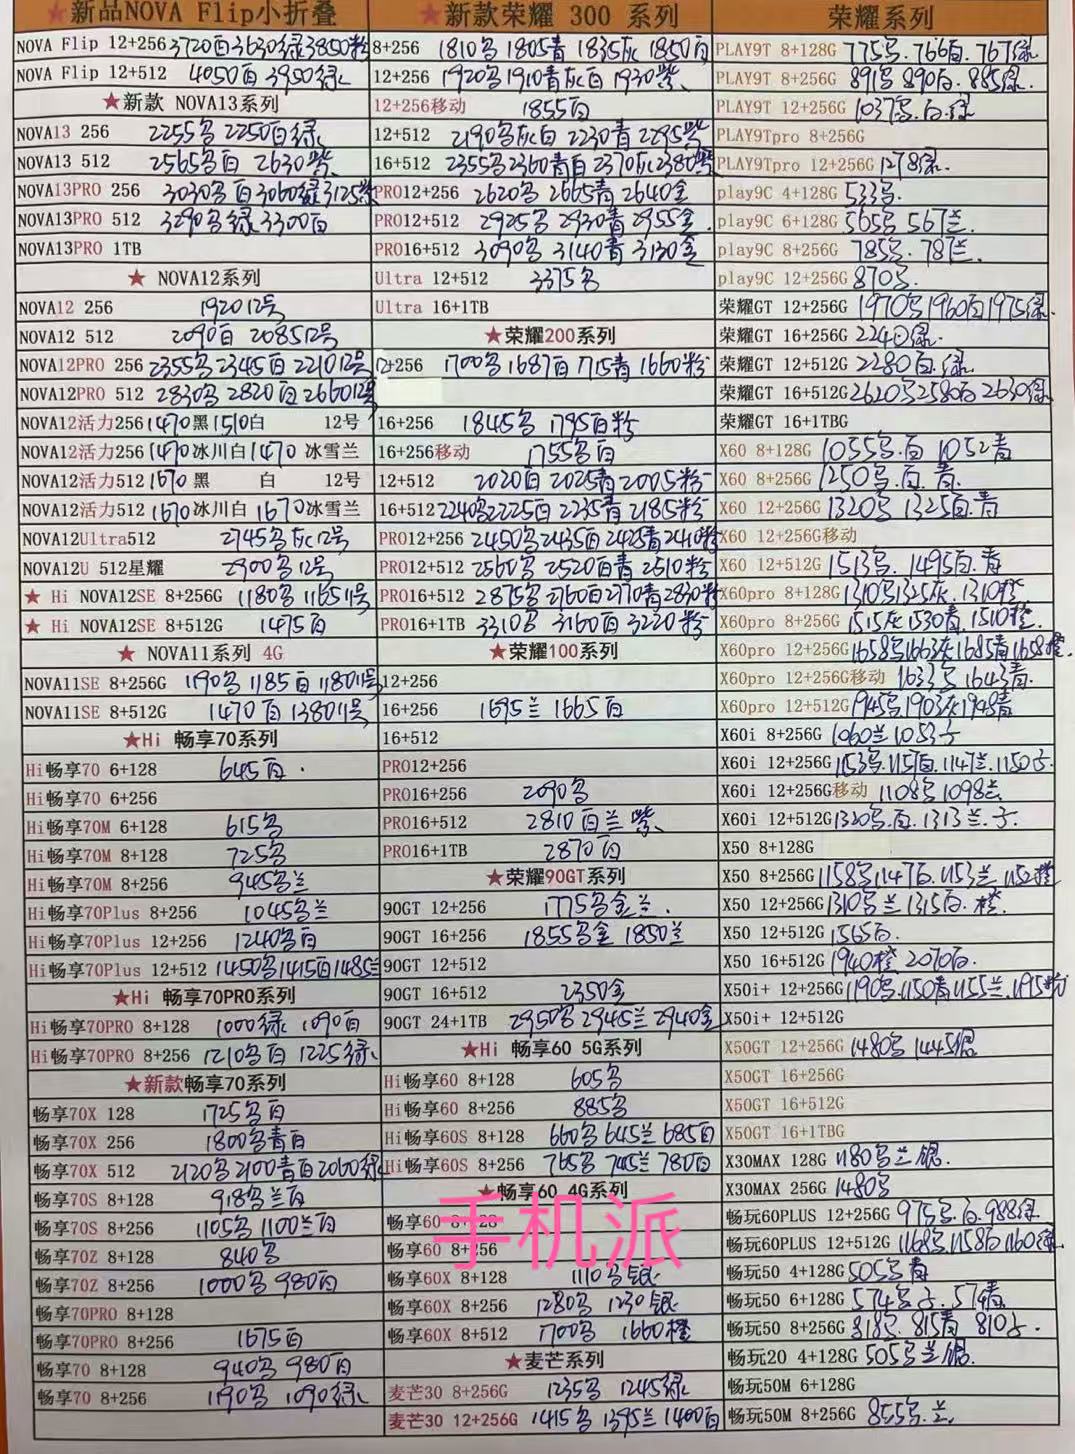 ★新品NOVA Flip小折叠
NOVA Flip 12+256 3720百3630绿3850粉
NOVA Flip 12+512 4050百 3950绿
★新款 NOVA13系列
NOVA13 256 2255名 2250百绿
NOVA13 512 2565名百 2630紫
NOVA13PRO 256 3030名百3060绿3125紫
NOVA13PRO 512 3290名绿3300百
NOVA13PRO 1TB
★ NOVA12系列
NOVA12 256 1920 12号
NOVA12 512 2090百 2085 12号
NOVA12PRO 256 2355名 2345百 2210 12号
NOVA12PRO 512 2830名 2820百 2660 12号
NOVA12活力256 1470黑1510白 12号
NOVA12活力256 1470冰川白1470 冰雪兰
NOVA12活力512 1670黑 白 12号
NOVA12活力512 1670冰川白 1670冰雪兰
NOVA12Ultra512 2745名灰12号
NOVA12U 512星耀 2900名12号
★ Hi NOVA12SE 8+256G 1180名 1165 11号
★ Hi NOVA12SE 8+512G 1475百
★ NOVA11系列 4G
NOVA11SE 8+256G 1190名 1185百 1180 11号
NOVA11SE 8+512G 1470百 1380 11号
★Hi 畅享70系列
Hi畅享70 6+128 645百.
Hi畅享70 6+256
Hi畅享70M 6+128 615名
Hi畅享70M 8+128 725名
Hi畅享70M 8+256 945名兰
Hi畅享70Plus 8+256 1045名兰
Hi畅享70Plus 12+256 1240名百
Hi畅享70Plus 12+512 1450名1415百1485兰
★Hi 畅享70PRO系列
Hi畅享70PRO 8+128 1000绿 1090百
Hi畅享70PRO 8+256 1210名百 1225绿
★新款畅享70系列
畅享70X 128 1725名百
畅享70X 256 1800名青百
畅享70X 512 2120名2100青百2060绿
畅享70S 8+128 918名兰百
畅享70S 8+256 1105名 1100兰百
畅享70Z 8+128 840名
畅享70Z 8+256 1000名 980百
畅享70PRO 8+128
畅享70PRO 8+256 1675百
畅享70 8+128 940名 980百
畅享70 8+256 1190名 1090绿
★新款荣耀 300 系列
8+256 1810名 1805青 1835灰 1850百
12+256 1920名1910青灰百 1930紫
12+256移动 1855百
12+512 2190名灰百 2230青 2295紫
16+512 2355名2360青百2370灰2380紫
PRO12+256 2620名 2665青 2640金
PRO12+512 2925名 2930青 2955金.
PRO16+512 3090名 3140青 3130金
Ultra 12+512 3375名
Ultra 16+1TB
★荣耀200系列
12+256 1700名 1687百 1715青 1660粉
16+256 1845名 1795百粉
16+256移动 1755名百
12+512 2020百 2025青 2005粉
16+512 2240名2225百 2235青 2185粉
PRO12+256 2450名2435百 2425青2410粉
PRO12+512 2560名 2520百青 2510粉
PRO16+512 2875名 2760百2770青2830粉
PRO16+1TB 3310名 3160百 3220粉
★荣耀100系列
12+256
16+256 1695兰 1665百
16+512
PRO12+256
PRO16+256 2090名
PRO16+512 2810百兰紫
PRO16+1TB 2870百
★荣耀90GT系列
90GT 12+256 1775名金兰.
90GT 16+256 1855名金 1850兰
90GT 12+512
90GT 16+512 2350金
90GT 24+1TB 2950名 2945兰 2940金
★Hi 畅享60 5G系列
Hi畅享60 8+128 605名
Hi畅享60 8+256 885名
Hi畅享60S 8+128 660名 645兰 685百
Hi畅享60S 8+256 765名 745兰 780百
★畅享60 4G系列
畅享60 8+128
畅享60 8+256
畅享60X 8+128 1110名银
畅享60X 8+256 1280名 1230银
畅享60X 8+512 1700名 1660橙
★麦芒系列
麦芒30 8+256G 1235名 1245绿
麦芒30 12+256G 1415名 1395兰 1400百
荣耀系列
PLAY9T 8+128G 775名.766百.767绿
PLAY9T 8+256G 891名 890百.885绿.
PLAY9T 12+256G 1037名.百.绿
PLAY9Tpro 8+256G
PLAY9Tpro 12+256G 1278绿.
play9C 4+128G 533名.
play9C 6+128G 565名 567兰.
play9C 8+256G 785名.787兰.
play9C 12+256G 870名.
荣耀GT 12+256G 1970名1960百1975绿.
荣耀GT 16+256G 2240绿.
荣耀GT 12+512G 2280百.绿.
荣耀GT 16+512G 2620名2580百2630绿
荣耀GT 16+1TBG
X60 8+128G 1055名.百 1052青
X60 8+256G 1250名.百.青.
X60 12+256G 1320名 1325百.青
X60 12+256G移动
X60 12+512G 1513名.1495百.青
X60pro 8+128G 1310名1325灰.1310橙
X60pro 8+256G 1515灰1530青.1510橙.
X60pro 12+256G 1658名1663灰1685青1658橙.
X60pro 12+256G移动 1633名 1643青.
X60pro 12+512G 1945名1903灰1948青
X60i 8+256G 1060兰1053子
X60i 12+256G 1153名.1157百.1147兰.1150子.
X60i 12+256G移动 1108名1098兰.
X60i 12+512G 1320名.百.1313兰.子.
X50 8+128G
X50 8+256G 1158名1147百.1153兰 1152橙
X50 12+256G 1310名兰1315百.橙.
X50 12+512G 1565百.
X50 16+512G 1940橙 2070百.
X50i+ 12+256G 1190名.1150青1155兰.1195粉
X50i+ 12+512G
X50GT 12+256G 1480名 1445银
X50GT 16+256G
X50GT 16+512G
X50GT 16+1TBG
X30MAX 128G 1180名兰.银.
X30MAX 256G 1480名
畅玩60PLUS 12+256G 975名.百.988绿
畅玩60PLUS 12+512G 1168名.1158百1160绿.
畅玩50 4+128G 505名青
畅玩50 6+128G 574名子.574青.
畅玩50 8+256G 818名.815青 810子.
畅玩20 4+128G 505名兰银.
畅玩50M 6+128G
畅玩50M 8+256G 855名.兰.
手机派